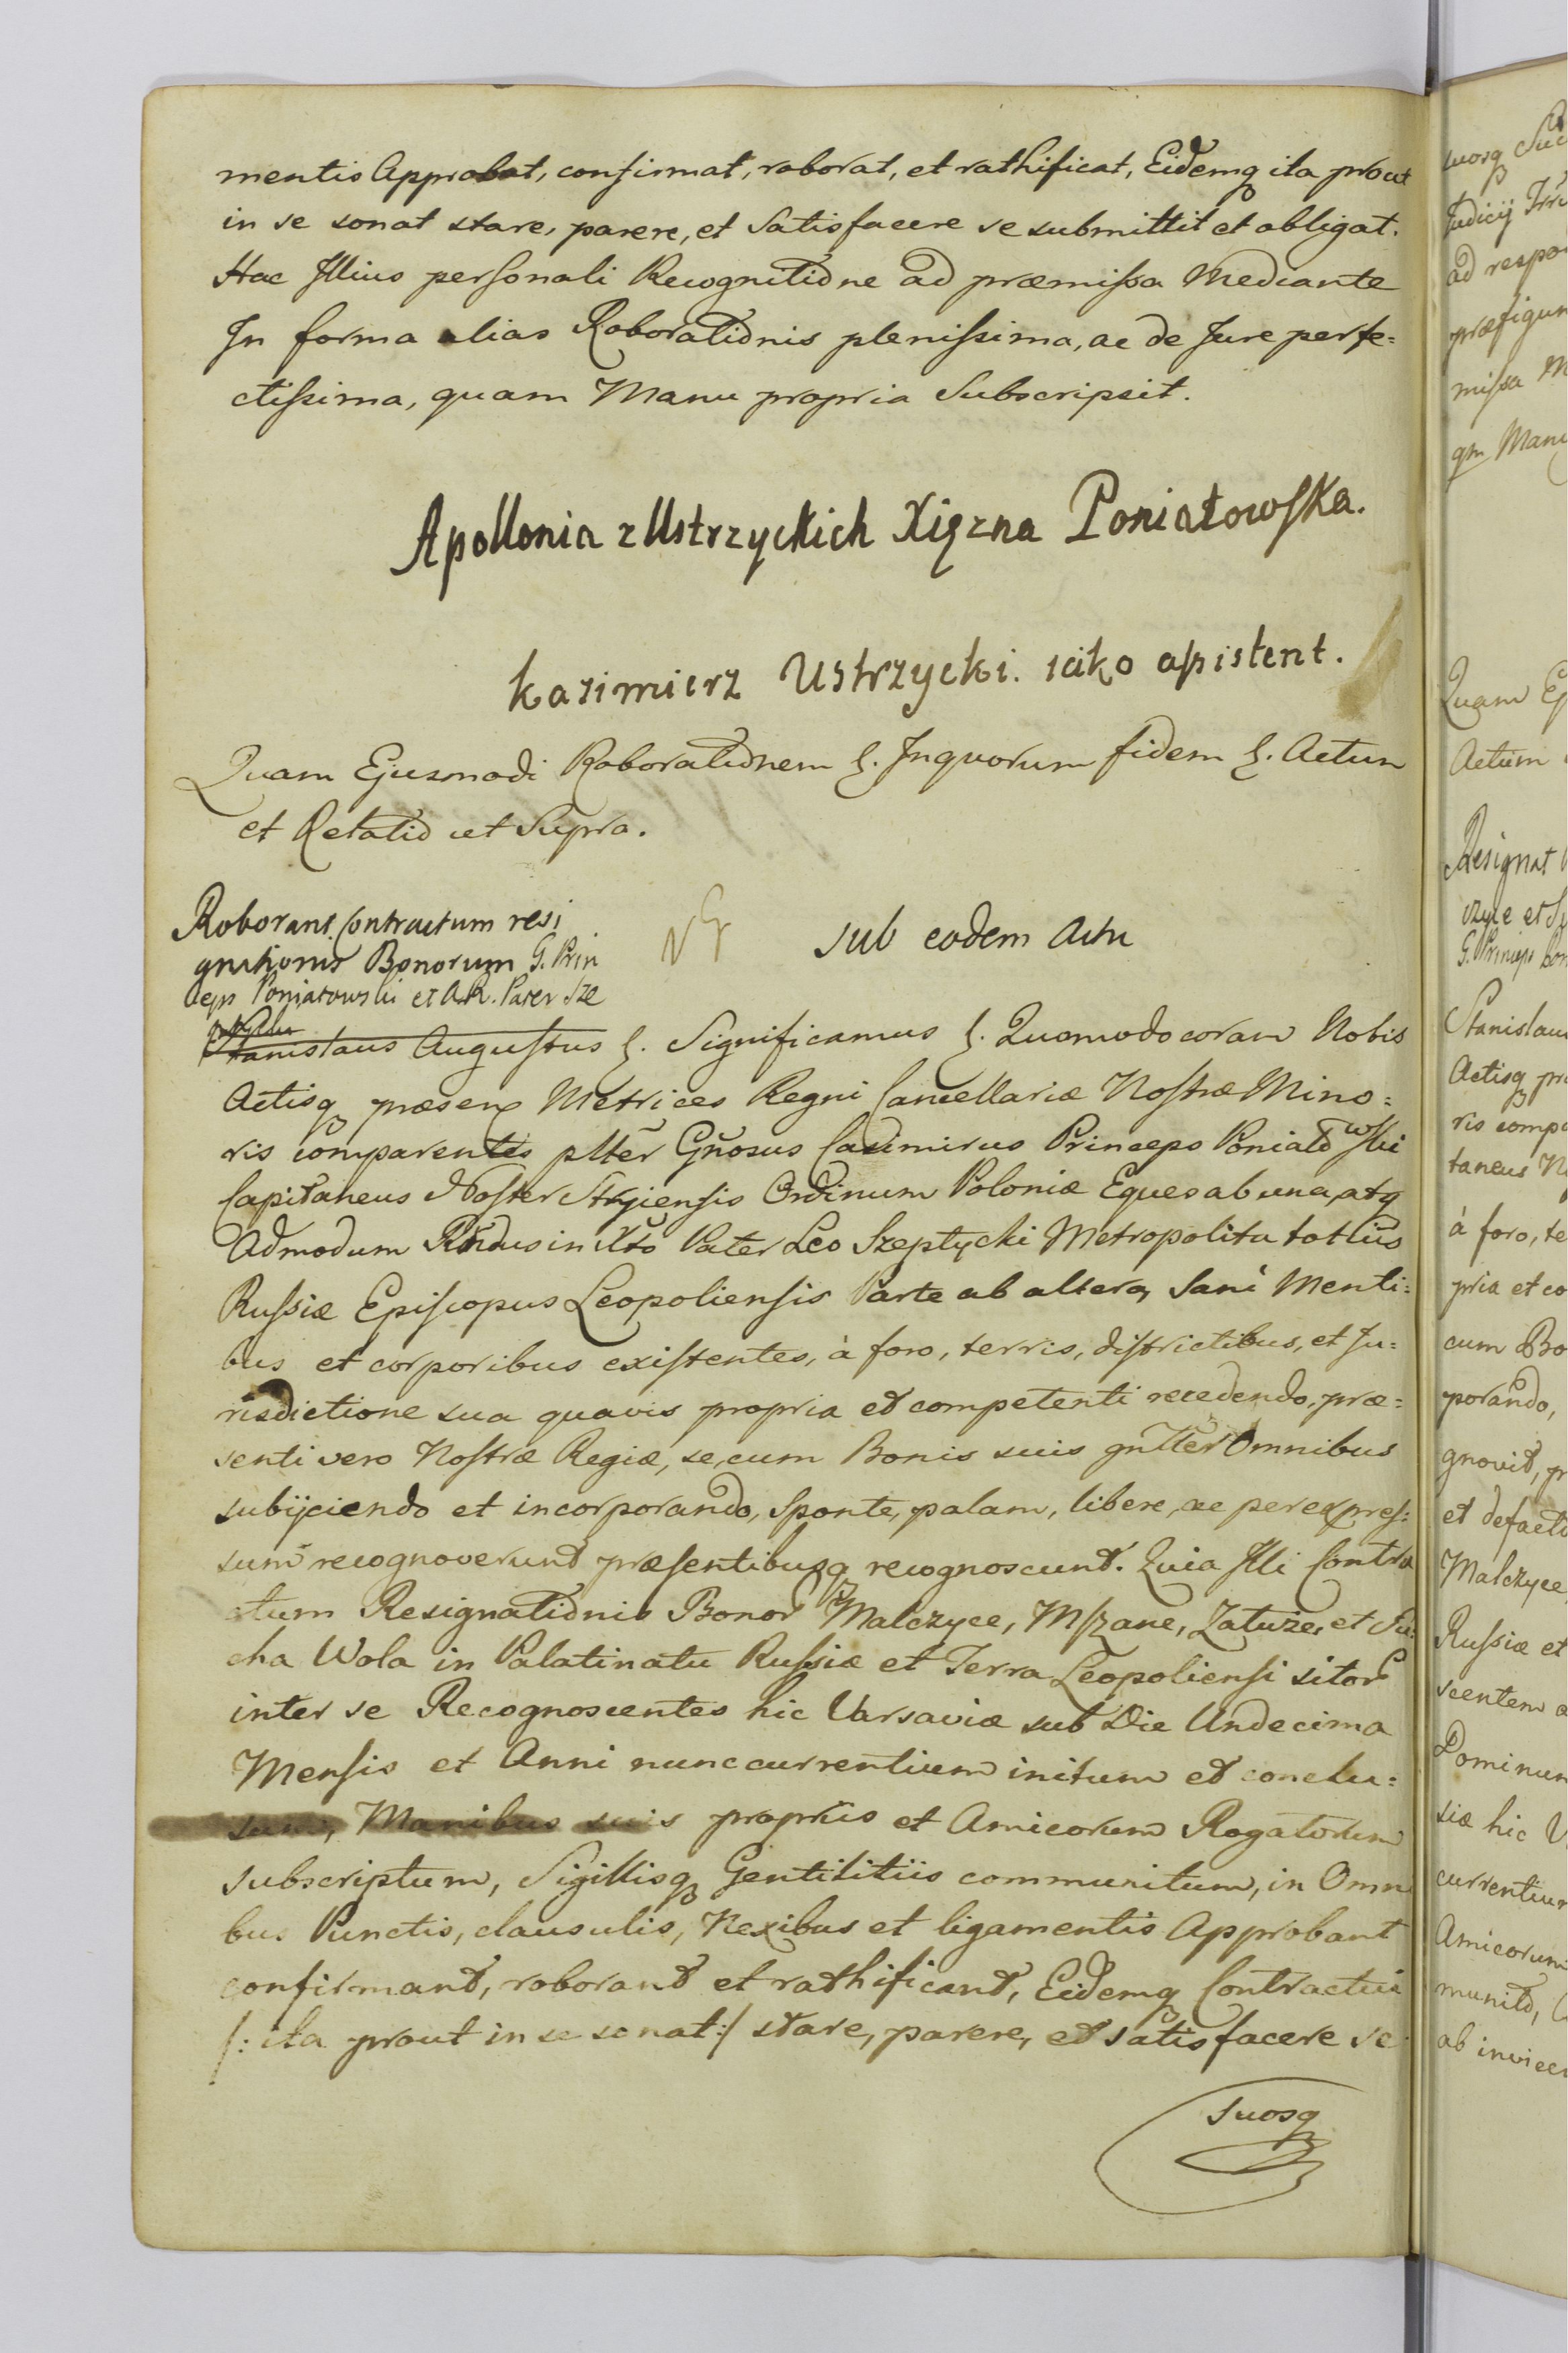 mentis Approbat, confirmat, roborat, et rathificat, Eidemq ita prout
in se sonat stare, parere, et Satisfacere se submittit et obligat.
Hac Illius personali Recognitione ad præmissa Mediante
In forma alias Roborationis plenissima, ac de Jure perfe=
ctissima, quam Manu propria Subscripsit.
Apollonia z Ustrzyckich Xiężna Poniatowska.
Kazimierz Ustrzycki. iako assistent.
Quam Ejusmodi Roborationem §. Inquorum fidem §. Actum
et Relatio ut Supra.
Roborant Contractum resi
gnationis Bonorum G. Prin
ceps Poniatowski et A.R. Pater Sze
ptycki
sub eodem Actu
Stanislaus Augustus §. Significamus §. Quomodo coram Nobis
Actisq præsen Metrices Regni Cancellariæ Nostræ Mino=
ris comparentes plter Gnosus Casimirus Princeps Poniatowski
Capitaneus Noster Stryiensis Ordinum Poloniæ Eques ab una, atq
Admodum Rndus in Xto Pater Leo Szeptycki Metropolita totius
Russiæ Episcopus Leopoliensis Parte ab altera, Sani Menti=
bus et corporibus existentes, à foro, terris, districtibus, et Ju=
risdictione sua quavis propria et competenti recedendo, præ=
senti vero Nostræ Regiæ, se, cum Bonis suis gnlter Omnibus
subijciendo et incorporando, Sponte, palam, libere, ac per expres=
sum recognoverunt præsentibusq recognoscunt. Quia Illi Contra
ctum Resignationis Bonor Malczyce, Mszane, Zatuże, et Su=
cha Wola in Palatinatu Russiæ et Terra Leopoliensi sitor
inter se Recognoscentes hic Varsaviæ sub Die Undecima
Mensis et Anni nunc currentium initum et conclu=
sum, Manibus suis propriis et Amicorum Rogatorum
subscriptum, Sigillisq Gentilitiis communitum, in Omni
bus Punctis, clausulis, Nexibus et ligamentis Approbant
confirmant, roborant et rathificant, Eidemq Contractui
/: ita prout in se sonat :/ stare, parere, et satisfacere se
Suosq